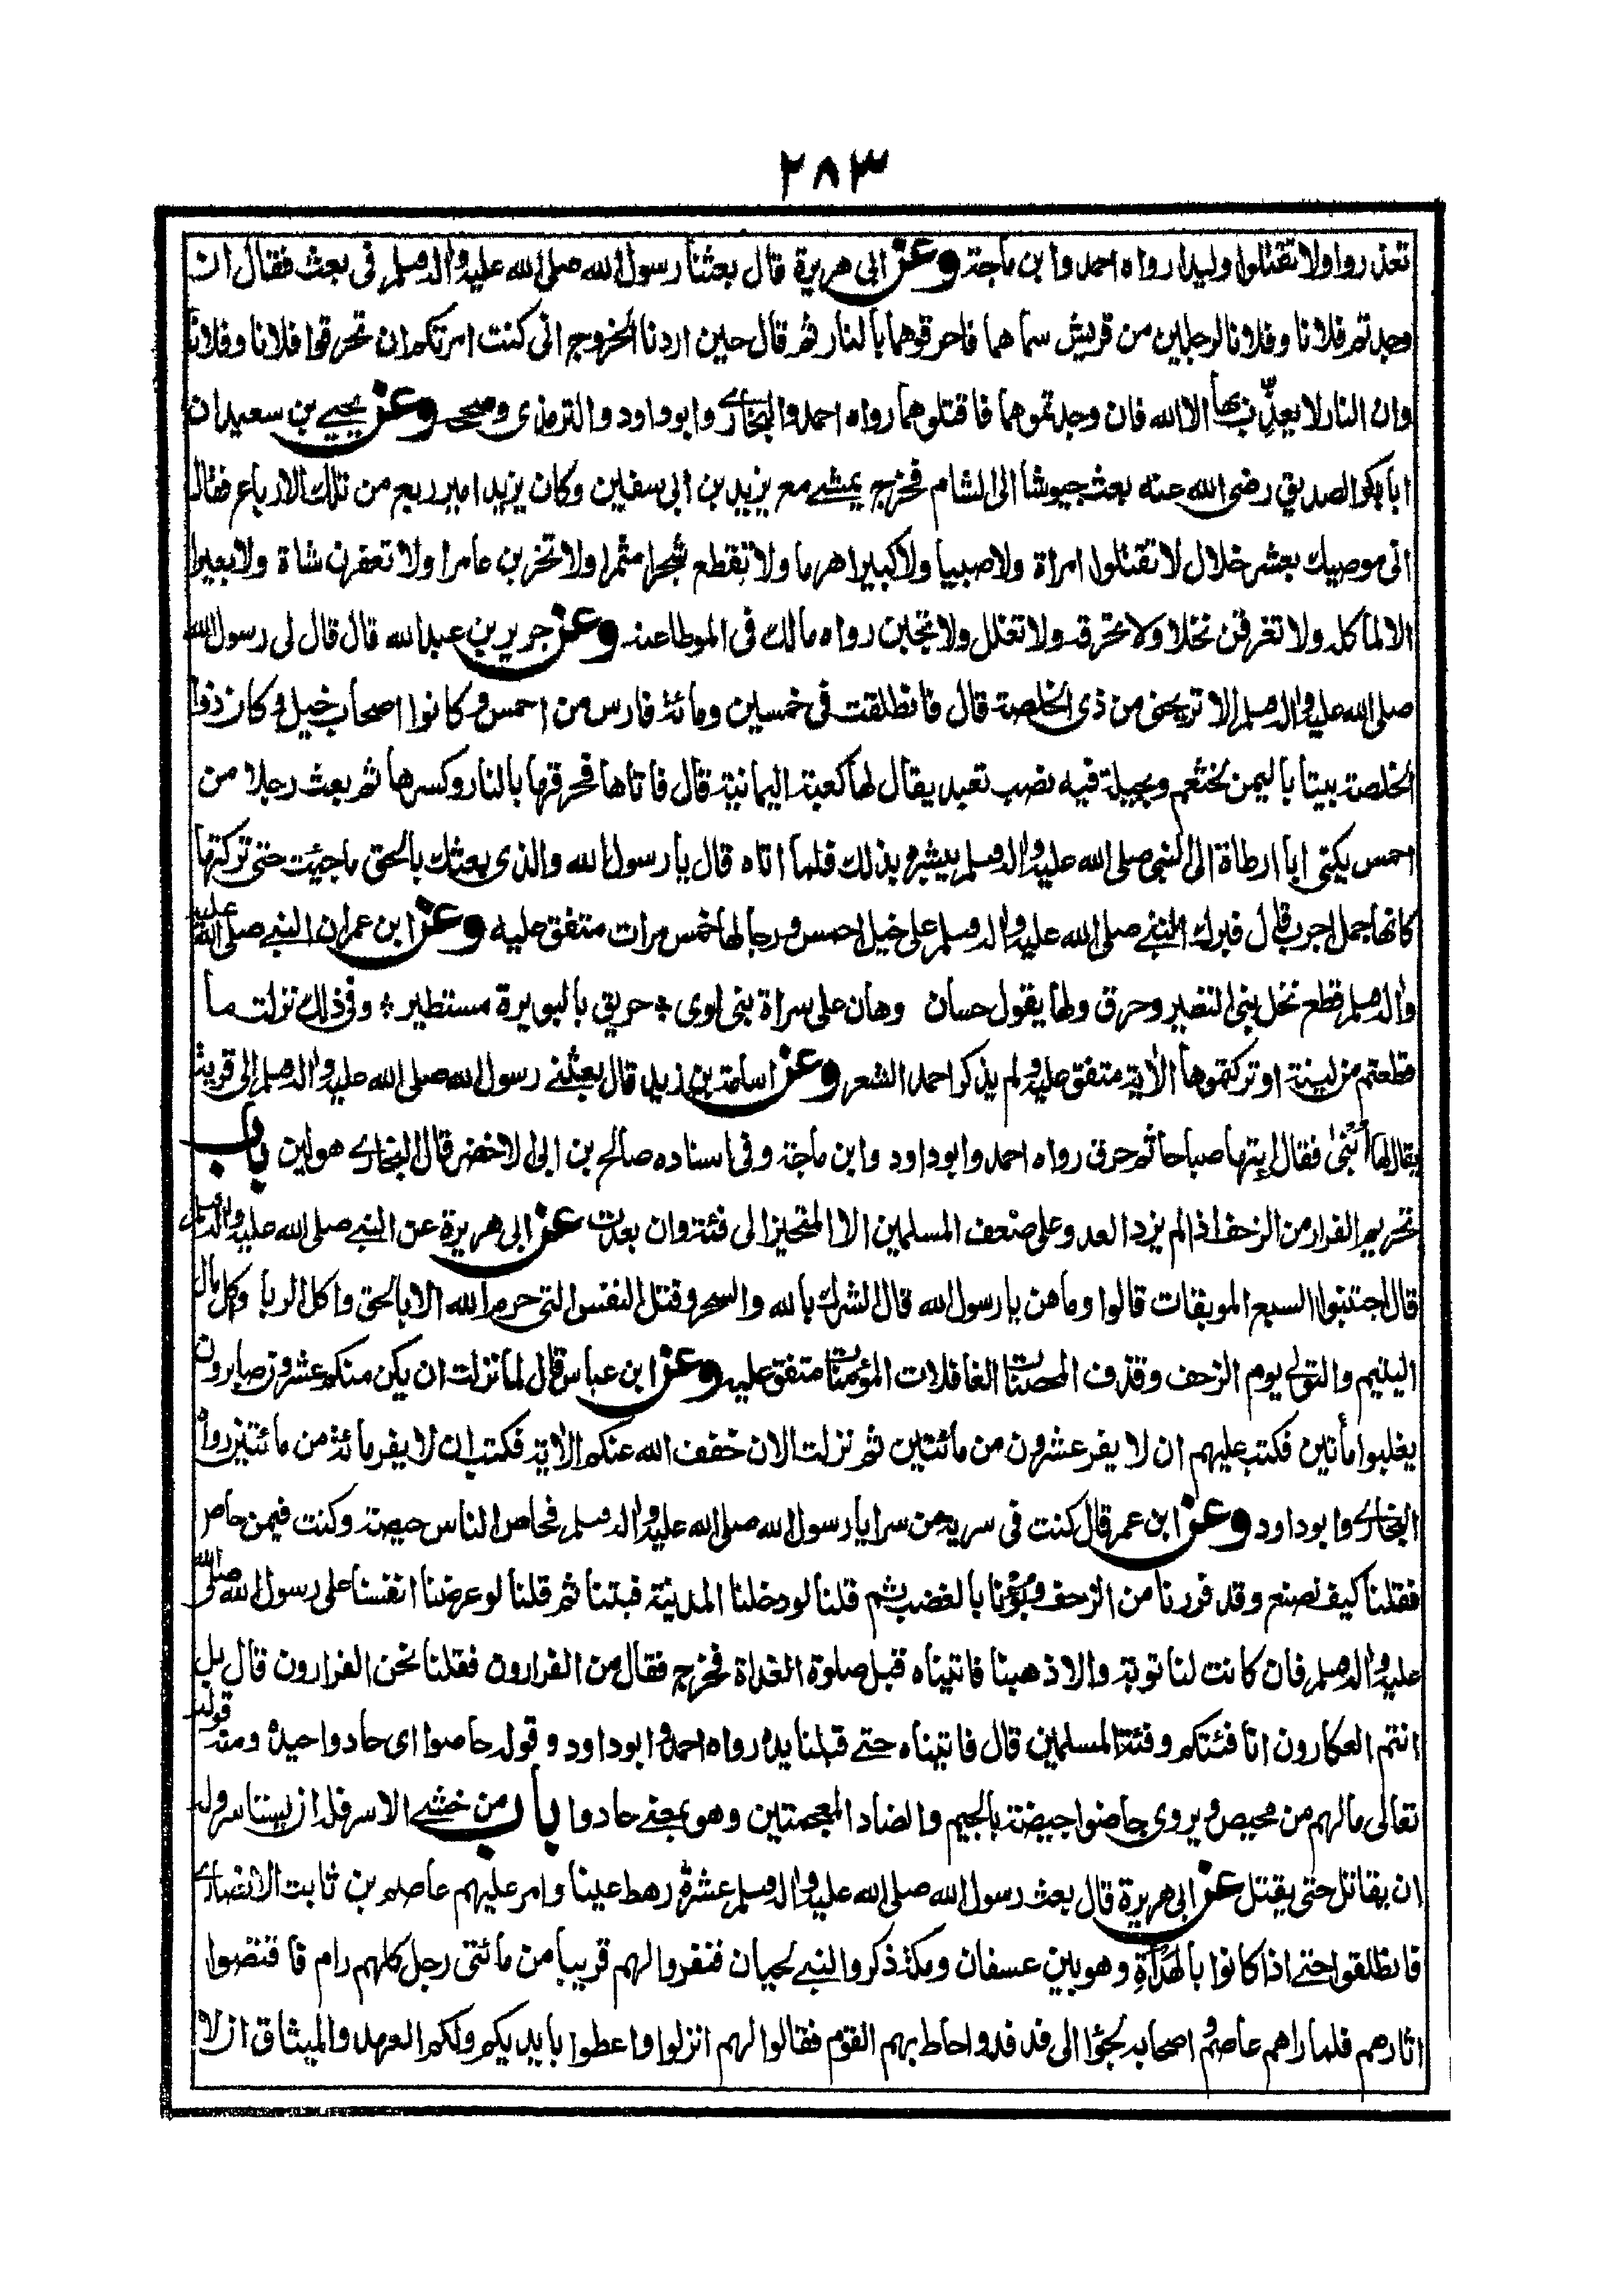 ٢٨٣
تغدروا ولا تقتلوا وليدا رواه احمد وابن ماجة وعن ابى هريرة قال بعثنا رسول الله صلى الله عليه واله وسلم فى بعث فقال ان
وجدتم فلانا وفلانا لرجلين من قريش سماهما فاحرقوهما بالنار ثم قال حين اردنا الخروج انى كنت امرتكم ان تحرقوا فلانا وفلانا
وان النار لا يعذب بها الا الله فان وجدتموهما فاقتلوهما رواه احمد والبخارى وابوداود والترمذى وصححه وعن يحيى بن سعيد ان
ابابكر الصديق رضى الله عنه بعث جيوشا الى الشام فخرج يمشى مع يزيد بن ابى سفين وكان يزيد امير ربع من تلك الارباع فقال
انى موصيك بعشر خلال لا تقتلوا امراة ولا صبيا ولا كبيرا هرما ولا تقطع شجرا مثمرا ولا تخربن عامرا ولا تعقرن شاة ولا بعيرا
الا لماكله ولا تغرقن نخلا ولا تحرقه ولا تغلل ولا تجبن رواه مالك فى الموطا عنه وعن جرير بن عبدالله قال قال لى رسول الله
صلى الله عليه واله وسلم الا تريحنى من ذى الخلصة قال فانطلقت فى خمسين ومائة فارس من احمس وكانوا اصحاب خيل وكان ذوا
الخلصة بيتا باليمن لخثعم وبجيلة فيه نصب تعبد يقال لها كعبة اليمانية قال فاتاها فحرقها بالنار وكسرها ثم بعث رجلا من
احمس يكنى ابا ارطاة الى النبى صلى الله عليه واله وسلم يبشره بذلك فلما اتاه قال يا رسول الله والذى بعثك بالحق ما جئت حتى تركتها
كانها جمل اجرب قال فبرك النبى صلى الله عليه واله وسلم على خيل احمس ورجالها خمس مرات متفق عليه وعن ابن عمر ان النبى صلى الله عليه
واله وسلم قطع نخل بنى النضير وحرق ولها يقول حسان وهان على سراة بنى لوى * حريق بالبويرة مستطير * وفى ذلك نزلت ما
قطعتم من لينة او تركتموها الاية متفق عليه ولم يذكر احمد الشعر وعن اسامة بن زيد قال بعثنى رسول الله صلى الله عليه واله وسلم الى قرية
يقال لها اُبْنٰى فقال ايتها صباحا ثم حرق رواه احمد وابوداود وابن ماجة وفى اسناده صالح بن ابى لاخضر قال البخارى هو لين باب
تحريم الفرار من الزحف اذا لم يزد العدو على ضعف المسلمين الا المتحيز الى فئة وان بعدت عن ابى هريرة عن النبى صلى الله عليه واله وسلم
قال اجتنبوا السبع الموبقات قالوا وما هن يا رسول الله قال الشرك بالله والسحر وقتل النفس التى حرم الله الا بالحق واكل الربا واكل مال
اليتيم والتولى يوم الزحف وقذف المحصنات الغافلات المؤمنات متفق عليه وعن ابن عباس قال لما نزلت ان يكن منكم عشرون صابرون
يغلبوا مأتين فكتب عليهم ان لا يفر عشرون من مائتين ثم نزلت الان خفف الله عنكم الاية فكتب ان لا يفر مائة من مائتين رواه
البخارى وابوداود وعن ابن عمر قال كنت فى سرية من سرايا رسول الله صلى الله عليه واله وسلم فحاص الناس حيصة وكنت فيمن حاص
فقلنا كيف نصنع وقد فررنا من الزحف وبُؤنا بالغضب ثم قلنا لو دخلنا المدينة فبتنا ثم قلنا لو عرضنا انفسنا على رسول الله صلى الله
عليه واله وسلم فان كانت لنا توبة والا ذهبنا فاتيناه قبل صلوة الغداة فخرج فقال من الفرارون فقلنا نحن الفرارون قال بل
انتم العكارون انا فئتكم وفئة المسلمين قال فاتيناه حتى قبلنا يده رواه احمد وابوداود وقوله حاصوا اى حادوا حيدة ومنه قوله
تعالى مالهم من محيص ويروى جاضوا جيضة بالجيم والضاد المعجمتين وهو بمعنى حادوا باب من خشى الاسر فله ان يستاسر وله
ان يقاتل حتى يقتل عن ابى هريرة قال بعث رسول الله صلى الله عليه واله وسلم عشرة رهط عينا وامر عليهم عاصم بن ثابت الانصارى
فانطلقوا حتى اذا كانوا بالهَدْأَةِ وهو بين عسفان ومكة ذكروا لبنى لحيان فنفروا لهم قريبا من مائتى رجل كلهم رام فاقتصوا
اثارهم فلما راهم عاصم واصحابه لجئوا الى فدفد واحاط بهم القوم فقالوا لهم انزلوا واعطوا بايديكم ولكم العهد والميثاق ان لا